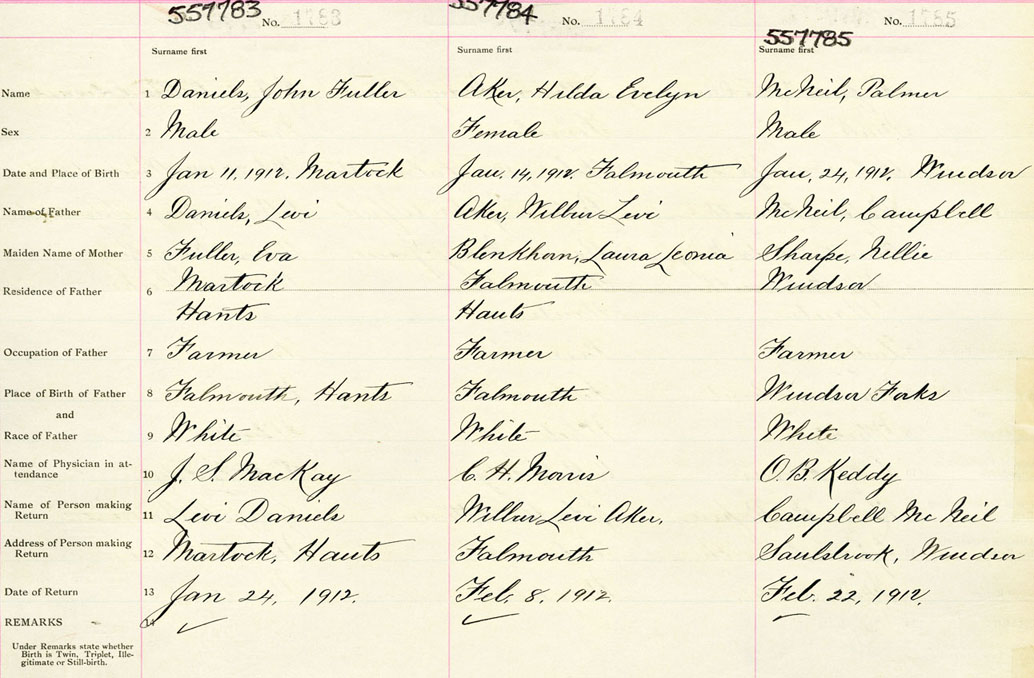 557783 No. 1783 557784 No. 1784 557785 No. 1785
Surname first Surname first Surname first
Name 1 Daniels, John Fuller Aker, Hilda Evelyn McNeil, Palmer
Sex 2 Male Female Male
Date and Place of Birth 3 Jan 11, 1912. Martock Jan. 14, 1912. Falmouth Jan. 24, 1912. Windsor
Name of Father 4 Daniels, Levi Aker, Wilbur Levi McNeil, Campbell
Maiden Name of Mother 5 Fuller, Eva Blenkhorn, Laura Leonia Sharpe, Nellie
Residence of Father 6 Martock Falmouth Windsor
Hants Hants
Occupation of Father 7 Farmer Farmer Farmer
Place of Birth of Father 8 Falmouth, Hants Falmouth Windsor Forks
and
Race of Father 9 White White White
Name of Physician in at-
tendance 10 J. S. MacKay C. H. Morris O. B. Keddy
Name of Person making
Return 11 Levi Daniels Wilbur Levi Aker, Campbell Mc Neil
Address of Person making
Return 12 Martock, Hants Falmouth Saulsbrook, Windsor
Date of Return 13 Jan 24, 1912. Feb. 8, 1912. Feb. 22, 1912.
REMARKS 14
Under Remarks state whether
Birth is Twin, Triplet, Ille-
gitimate or Still-birth.